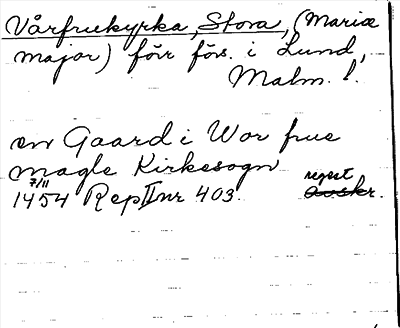 Vårfruekyrka, Stora, (Mariæ
major) förr förs. i Lund,
Malm. l.
en Gaard i Wor frue
magle Kirkesogn
7/11 regest
1454 Rep II nr 403. avskr.